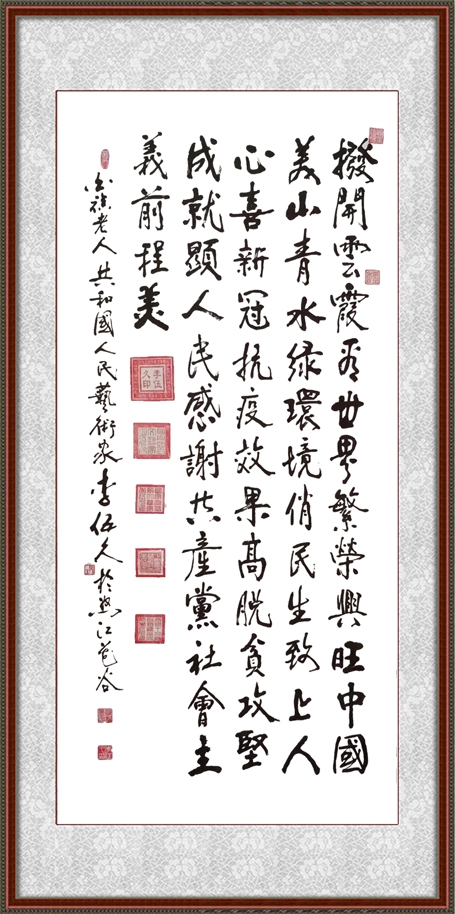 撥開雲霞看世界繁榮興旺中國
美山青水綠環境俏民生致上人
心喜新冠抗疫效果高脫貧攻堅
成就顯人民感謝共產黨社會主
義前程美
李伍久印
白族老人共和國人民藝術家李伍久於怒江花谷